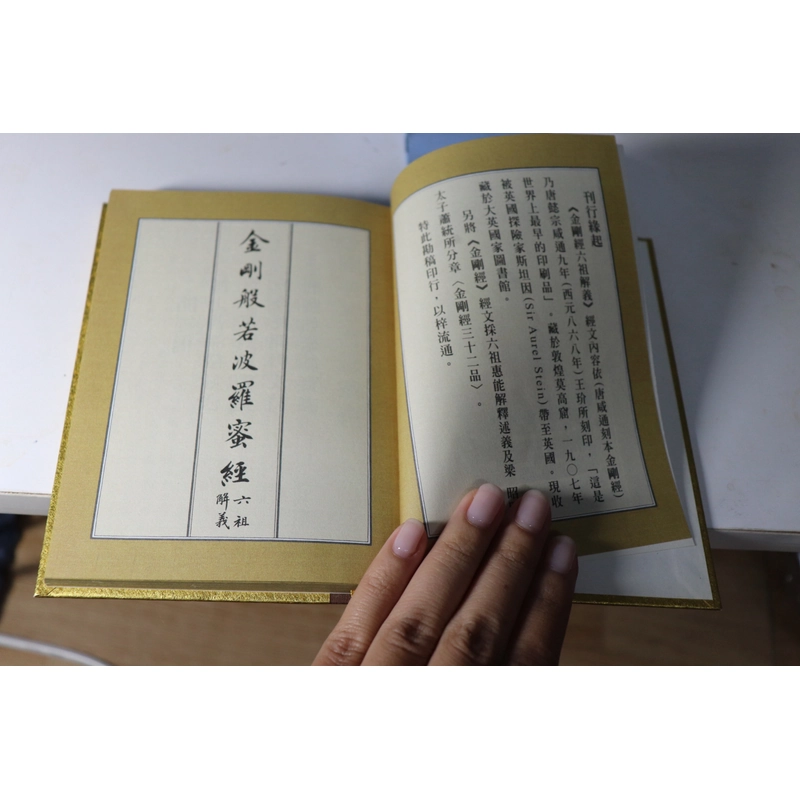 刊行緣起
《金剛經六祖解義》經文內容依(唐咸通刻本金剛經)
乃唐懿宗咸通九年(西元八六八年)王玠所刻印，「這是
世界上最早的印刷品」。藏於敦煌莫高窟，一九〇七年
被英國探險家斯坦因(Sir Aurel Stein)帶至英國。現收
藏於大英國家圖書館。
另將《金剛經》經文採六祖惠能解釋述義及梁 昭
太子蕭統所分章〈金剛經三十二品〉。
特此勘稿印行，以梓流通。
金剛般若波羅蜜經
六祖
解義